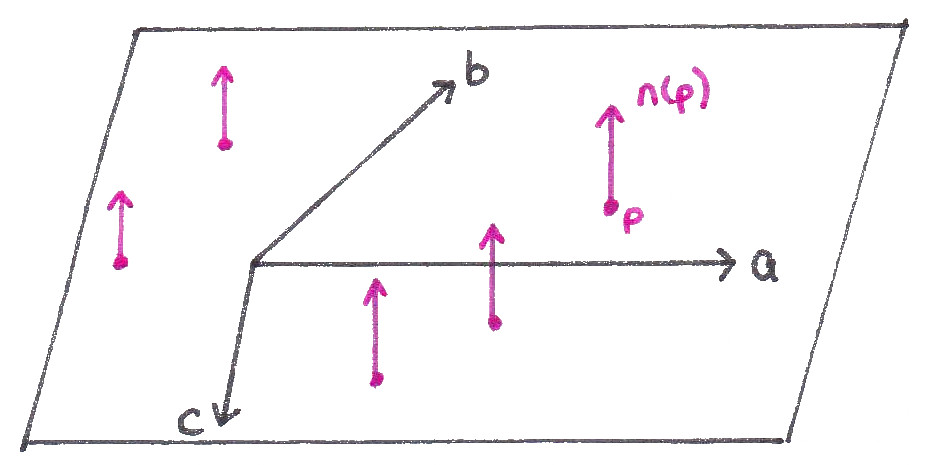 b
n(p)
p
a
c